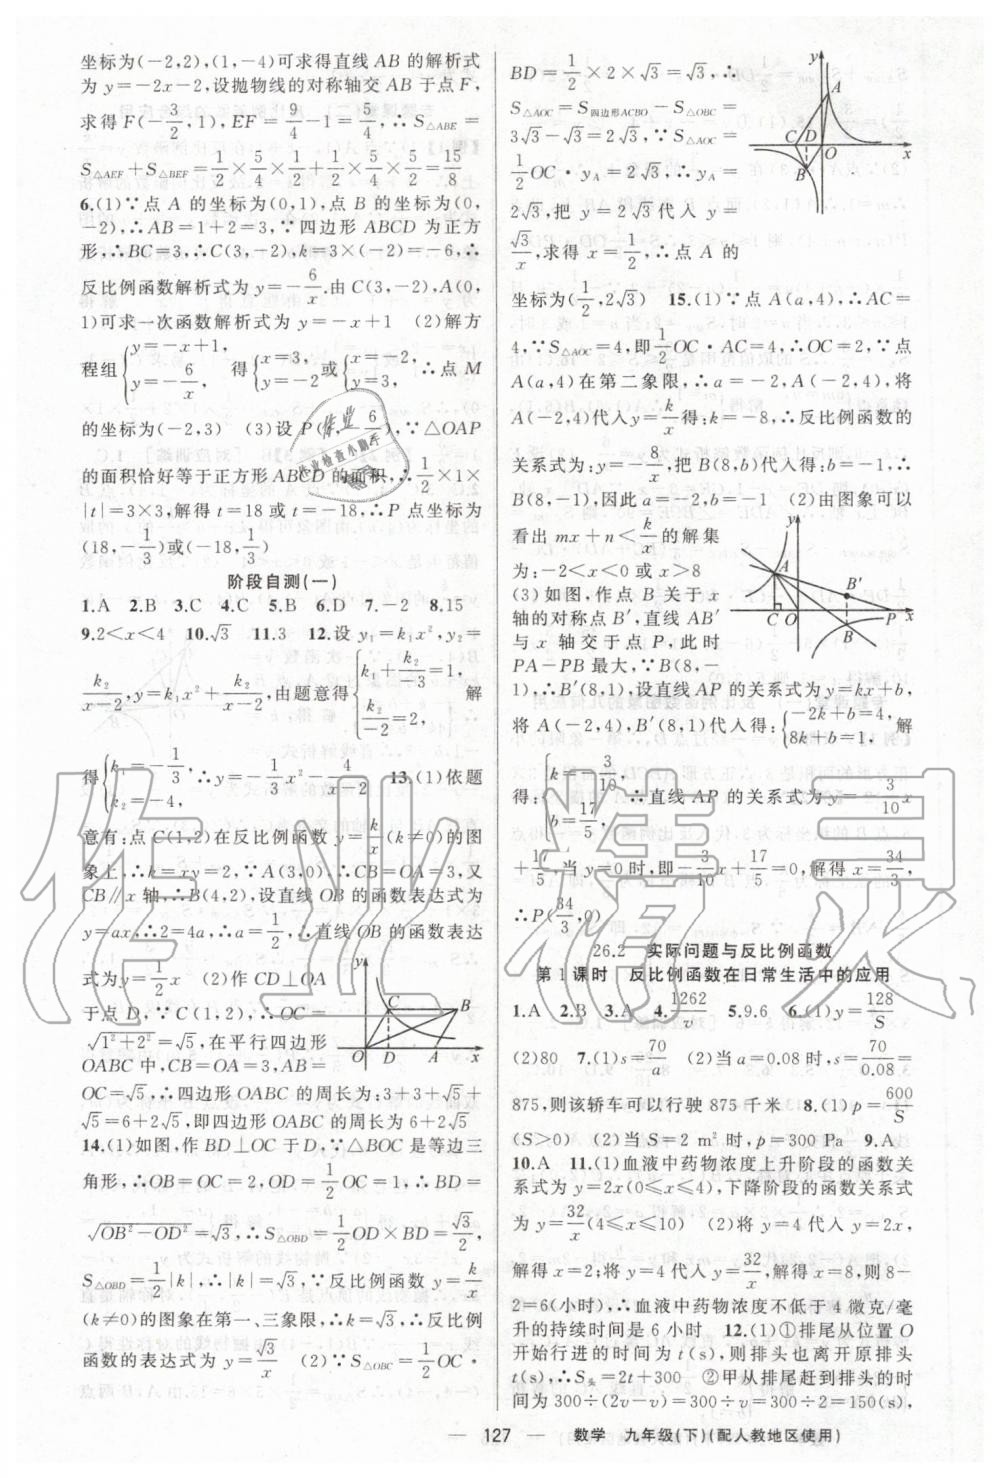 坐标为(-2,2),(1,-4)可求得直线 AB 的解析式
为 y=-2x-2,设抛物线的对称轴交 AB 于点 F,
求得 F(-3/2,1),EF=9/4-1=5/4,∴S△ABE=
S△AEF+S△BEF=1/2×5/4×1/2+1/2×5/4×5/2=15/8
6.(1)∵点 A 的坐标为(0,1),点 B 的坐标为(0,
-2),∴AB=1+2=3,∵四边形 ABCD 为正方
形,∴BC=3,∴C(3,-2),k=3×(-2)=-6,∴
反比例函数解析式为 y=-6/x.由 C(3,-2),A(0,
1)可求一次函数解析式为 y=-x+1 (2)解方
程组{y=-x+1, y=-6/x, 得{x=3, y=-2 或{x=-2, y=3, ∴点 M
的坐标为(-2,3) (3)设 P(t,-6/t),∵△OAP
的面积恰好等于正方形 ABCD 的面积,∴1/2×1×
|t|=3×3,解得 t=18 或 t=-18,∴P 点坐标为
(18,-1/3)或(-18,1/3)
阶段自测(一)
1.A 2.B 3.C 4.C 5.B 6.D 7.-2 8.15
9.2<x<4 10.√3 11.3 12.设 y₁=k₁x²,y₂=
k₂/(x-2),y=k₁x²+k₂/(x-2),由题意得{k₁+k₂/(-3)=1, k₂/(-2)=2, 解
得{k₁=-1/3, k₂=-4, ∴y=-1/3x²-4/(x-2) 13.(1)依题
意有:点 C(1,2)在反比例函数 y=k/x(k≠0)的图
象上,∴k=xy=2,∵A(3,0),∴CB=OA=3,又
CB∥x 轴,∴B(4,2),设直线 OB 的函数表达式为
y=ax,∴2=4a,∴a=1/2,∴直线 OB 的函数表达
式为 y=1/2x (2)作 CD⊥OA
于点 D,∵C(1,2),∴OC=
√(1²+2²)=√5,在平行四边形
OABC 中,CB=OA=3,AB=
OC=√5,∴四边形 OABC 的周长为:3+3+√5
+√5=6+2√5,即四边形 OABC 的周长为 6+2√5
14.(1)如图,作 BD⊥OC 于 D,∵△BOC 是等边三
角形,∴OB=OC=2,OD=1/2OC=1,∴BD=
√(OB²-OD²)=√3,∴S△OBD=1/2OD×BD=√3/2,
S△OBD=1/2|k|,∴|k|=√3,∵反比例函数 y=k/x
(k≠0)的图象在第一、三象限,∴k=√3,∴反比例
函数的表达式为 y=√3/x (2)∵S△OBC=1/2OC·
y
C
B
O
D
A
x
BD=1/2×2×√3=√3,∴
S△AOC=S四边形ACBO-S△OBC=
3√3-√3=2√3,∵S△AOC=
1/2OC·yA=2√3,∴yA=
2√3,把 y=2√3代入 y=
√3/x,求得 x=1/2,∴点 A 的
坐标为(1/2,2√3) 15.(1)∵点 A(a,4),∴AC=
4,∵S△AOC=4,即1/2OC·AC=4,∴OC=2,∵点
A(a,4)在第二象限,∴a=-2,∴A(-2,4),将
A(-2,4)代入 y=k/x得:k=-8,∴反比例函数的
关系式为:y=-8/x,把 B(8,b)代入得:b=-1,∴
B(8,-1),因此 a=-2,b=-1 (2)由图象可以
看出 mx+n<k/x的解集
为:-2<x<0 或 x>8
(3)如图,作点 B 关于 x
轴的对称点 B′,直线 AB′
与 x 轴交于点 P,此时
PA-PB 最大,∵B(8,-
1),∴B′(8,1),设直线 AP 的关系式为 y=kx+b,
将 A(-2,4),B′(8,1)代入得:{-2k+b=4, 8k+b=1, 解
得:{k=-3/10, b=17/5, ∴直线 AP 的关系式为 y=-3/10x
+17/5,当 y=0 时,即-3/10x+17/5=0,解得 x=34/3,
∴P(34/3,0)
26.2 实际问题与反比例函数
第 1 课时 反比例函数在日常生活中的应用
1.A 2.B 3.A 4.1262/v 5.9.6 6.(1)y=128/S
(2)80 7.(1)s=70/a (2)当 a=0.08 时,s=70/0.08=
875,则该轿车可以行驶 875 千米 8.(1)p=600/S
(S>0) (2)当 S=2 m² 时,p=300 Pa 9.A
10.A 11.(1)血液中药物浓度上升阶段的函数关
系式为 y=2x(0≤x≤4),下降阶段的函数关系式
为 y=32/x(4≤x≤10) (2)将 y=4 代入 y=2x,
解得 x=2;将 y=4 代入 y=32/x,解得 x=8,则 8-
2=6(小时),∴血液中药物浓度不低于 4 微克/毫
升的持续时间是 6 小时 12.(1)①排尾从位置 O
开始行进的时间为 t(s),则排头也离开原排头
t(s),∴S头=2t+300 ②甲从排尾赶到排头的时间
为 300÷(2v-v)=300÷v=300÷2=150(s),
y
A
C
D
O
x
B
y
A
B′
C
O
B
P
x
127 数学 九年级(下)(配人教地区使用)
作业
作业检查小助手
作业精灵